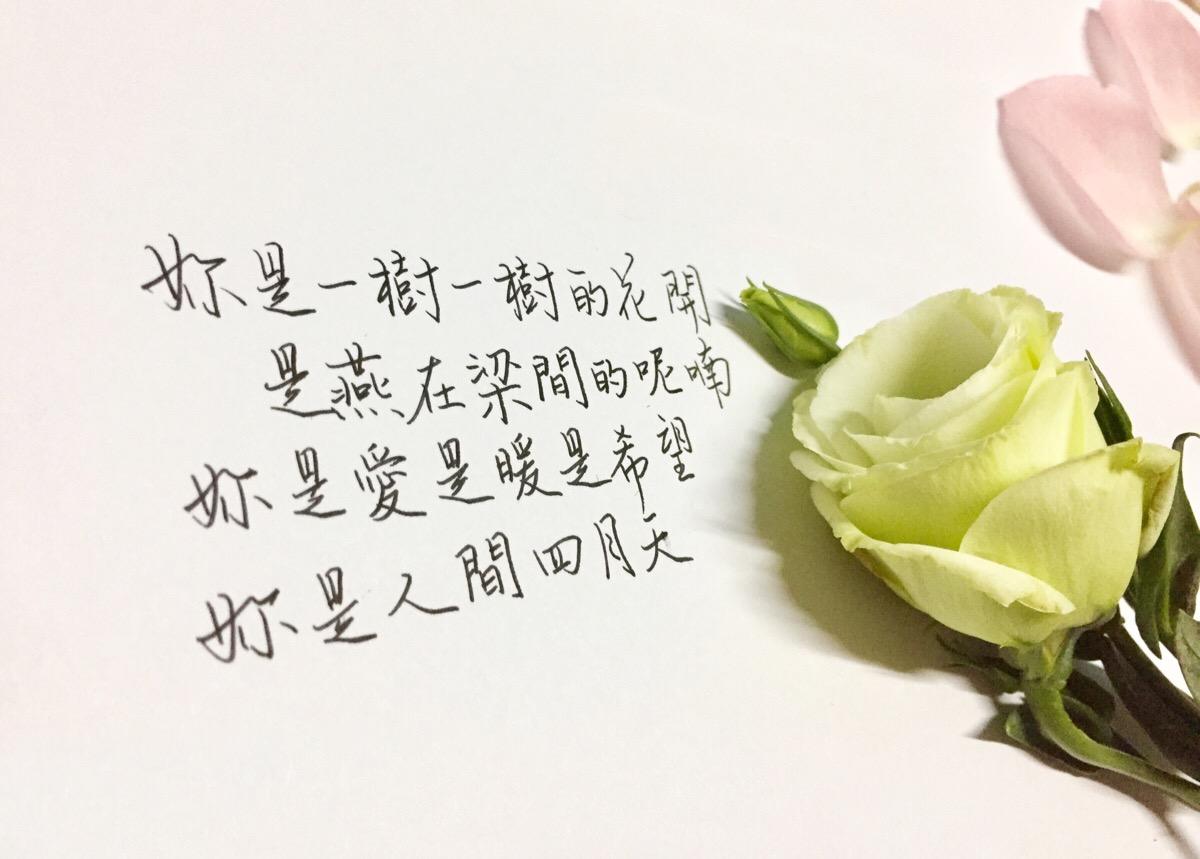 妳是一樹一樹的花開
是燕在梁間的呢喃
妳是愛是暖是希望
妳是人間四月天